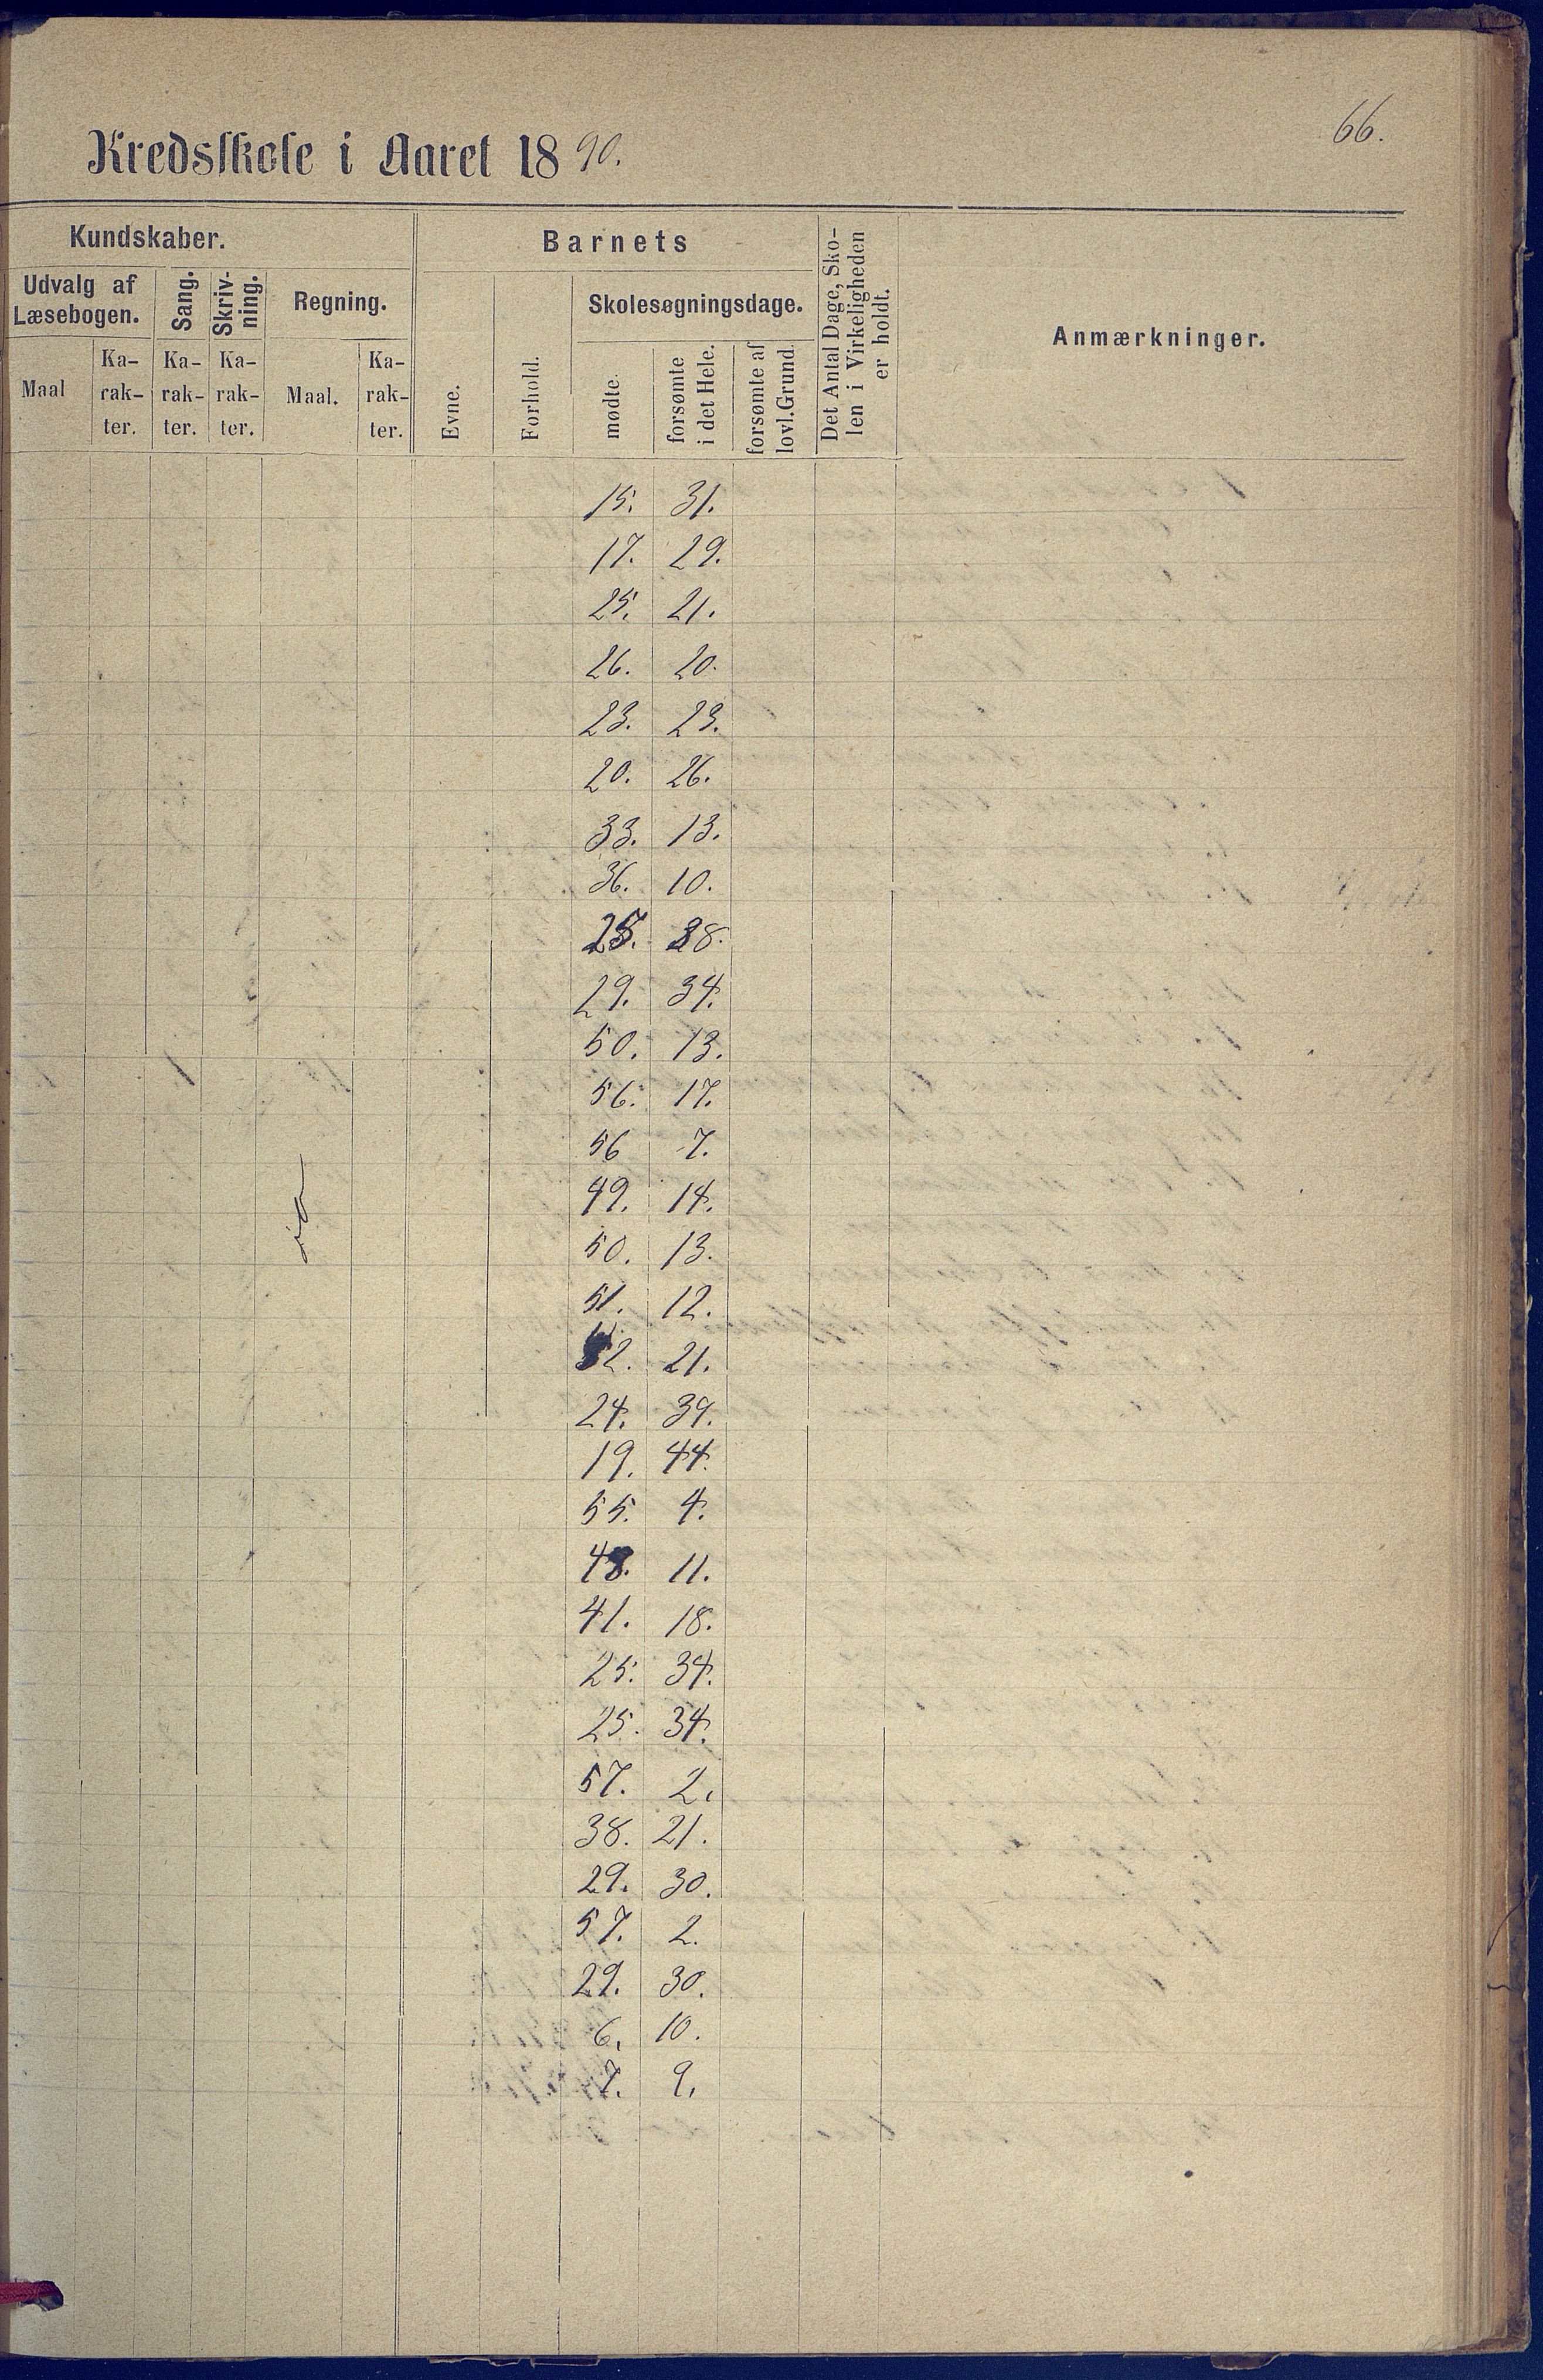 66.
Kredsskole i Aaret 1890.
Kundskaber.
Barnets
Det Antal Dage, Sko-
len i Virkeligheden
er holdt.
Anmærkninger.
Udvalg af
Læsebogen.
Sang.
Skriv-
ning.
Regning.
Evne.
Forhold.
Skolesøgningsdage.
Maal
Ka-
rak-
ter.
Ka-
rak-
ter.
Ka-
rak-
ter.
Maal.
Ka-
rak-
ter.
mødte.
forsømte
i det Hele.
forsømte af
lovl. Grund.
15. 31.
17. 29.
25. 21.
26. 20.
23. 23.
20. 26.
33. 13.
36. 10.
25. 38.
29. 34.
50. 13.
56. 17.
56 7.
49. 14.
50. 13.
51. 12.
21.
24. 39.
19. 44.
55. 4.
48. 11.
41. 18.
25. 34.
25. 34.
57. 2.
38. 21.
29. 30.
57. 2.
29. 30.
6. 10.
7. 9.